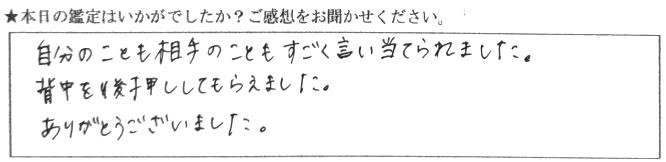 ★本日の鑑定はいかがでしたか？ご感想をお聞かせください。
自分のことも相手のこともすごく言い当てられました。
背中を後押ししてもらえました。
ありがとうございました。